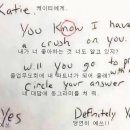 Katie. 케이티에게.
You know I have
a crush on you.
내가 너 좋아하는 것 너도 알고 있지?
will you go to pr
졸업무도회에 내 파트너가 되어 줄래?
with
circle your answer
네 대답에 동그라미를 쳐줘
Yes Definitely Y
당연히 예스!!